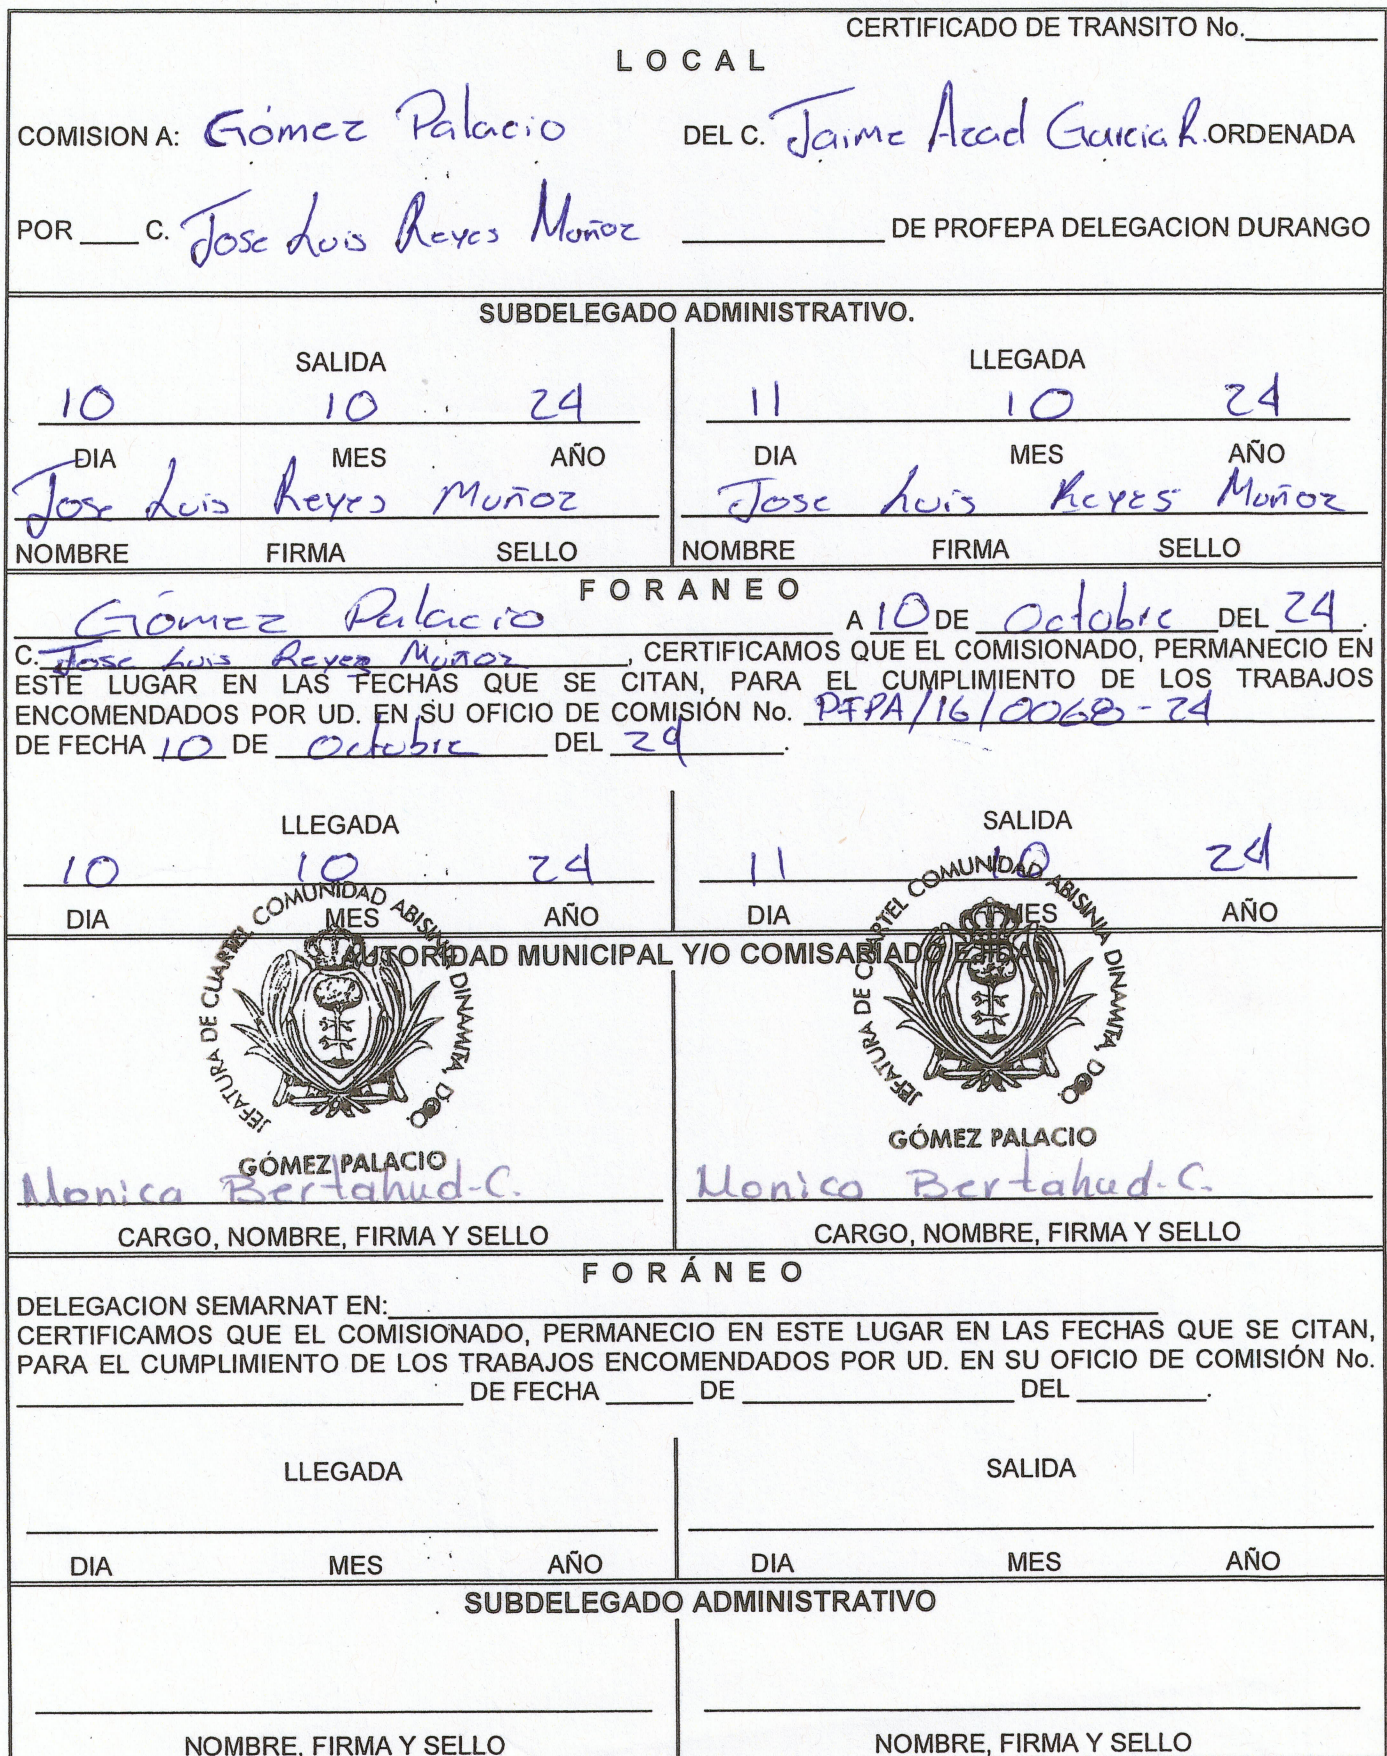 CERTIFICADO DE TRANSITO No.
L O C A L
COMISION A: Gómez Palacio DEL C. Jaime Azad Garcia R. ORDENADA
POR ____ C. Jose Luis Reyes Muñoz ____ DE PROFEPA DELEGACION DURANGO
SUBDELEGADO ADMINISTRATIVO.
SALIDA LLEGADA
10 10 24 11 10 24
DIA MES AÑO DIA MES AÑO
Jose Luis Reyes Muñoz Jose Luis Reyes Muñoz
NOMBRE FIRMA SELLO NOMBRE FIRMA SELLO
F O R A N E O
Gómez Palacio A 10 DE Octubre DEL 24.
C. Jose Luis Reyes Muñoz, CERTIFICAMOS QUE EL COMISIONADO, PERMANECIO EN
ESTE LUGAR EN LAS FECHAS QUE SE CITAN, PARA EL CUMPLIMIENTO DE LOS TRABAJOS
ENCOMENDADOS POR UD. EN SU OFICIO DE COMISIÓN No. PFPA/16/0068-24
DE FECHA 10 DE Octubre DEL 24.
LLEGADA SALIDA
10 10 24 11 10 24
DIA MES AÑO DIA MES AÑO
AUTORIDAD MUNICIPAL Y/O COMISARIADO EJIDAL
JEFATURA DE CUARTEL COMUNIDAD ABISINIA DINAMITA, DGO.
GÓMEZ PALACIO
JEFATURA DE CUARTEL COMUNIDAD ABISINIA DINAMITA, DGO.
GÓMEZ PALACIO
Monica Bertahud-C. Monica Bertahud-C.
CARGO, NOMBRE, FIRMA Y SELLO CARGO, NOMBRE, FIRMA Y SELLO
F O R Á N E O
DELEGACION SEMARNAT EN:
CERTIFICAMOS QUE EL COMISIONADO, PERMANECIO EN ESTE LUGAR EN LAS FECHAS QUE SE CITAN,
PARA EL CUMPLIMIENTO DE LOS TRABAJOS ENCOMENDADOS POR UD. EN SU OFICIO DE COMISIÓN No.
____ DE FECHA ____ DE ____ DEL ____.
LLEGADA SALIDA
DIA MES AÑO DIA MES AÑO
SUBDELEGADO ADMINISTRATIVO
NOMBRE, FIRMA Y SELLO NOMBRE, FIRMA Y SELLO